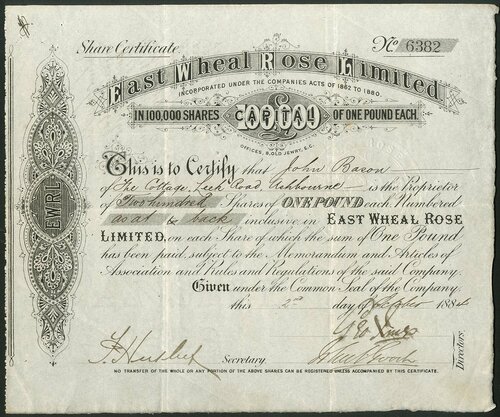 Share Certificate. No 6382
East Wheal Rose Limited
INCORPORATED UNDER THE COMPANIES ACTS OF 1862 TO 1880.
IN 100,000 SHARES CAPITAL OF ONE POUND EACH.
OFFICES, 8, OLD JEWRY, E.C.
This is to Certify that John Bacon
of The Cottage, Leek Road, Ashbourne is the Proprietor
of Two hundred Shares of ONE POUND each Numbered
as at to back inclusive in EAST WHEAL ROSE
LIMITED, on each Share of which the sum of One Pound
has been paid, subject to the Memorandum and Articles of
Association and Rules and Regulations of the said Company.
Given under the Common Seal of the Company.
this 2nd day of October 1884
Secretary.
Directors.
NO TRANSFER OF THE WHOLE OR ANY PORTION OF THE ABOVE SHARES CAN BE REGISTERED UNLESS ACCOMPANIED BY THIS CERTIFICATE.
EWRL